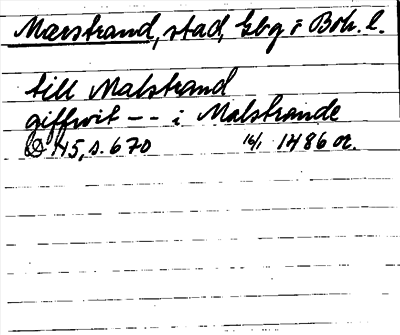 Marstrand, stad, Gbg o Boh. l.
till Malstrand
giffwit -- i Malstrande
45, s. 670 16/1 1486 or.